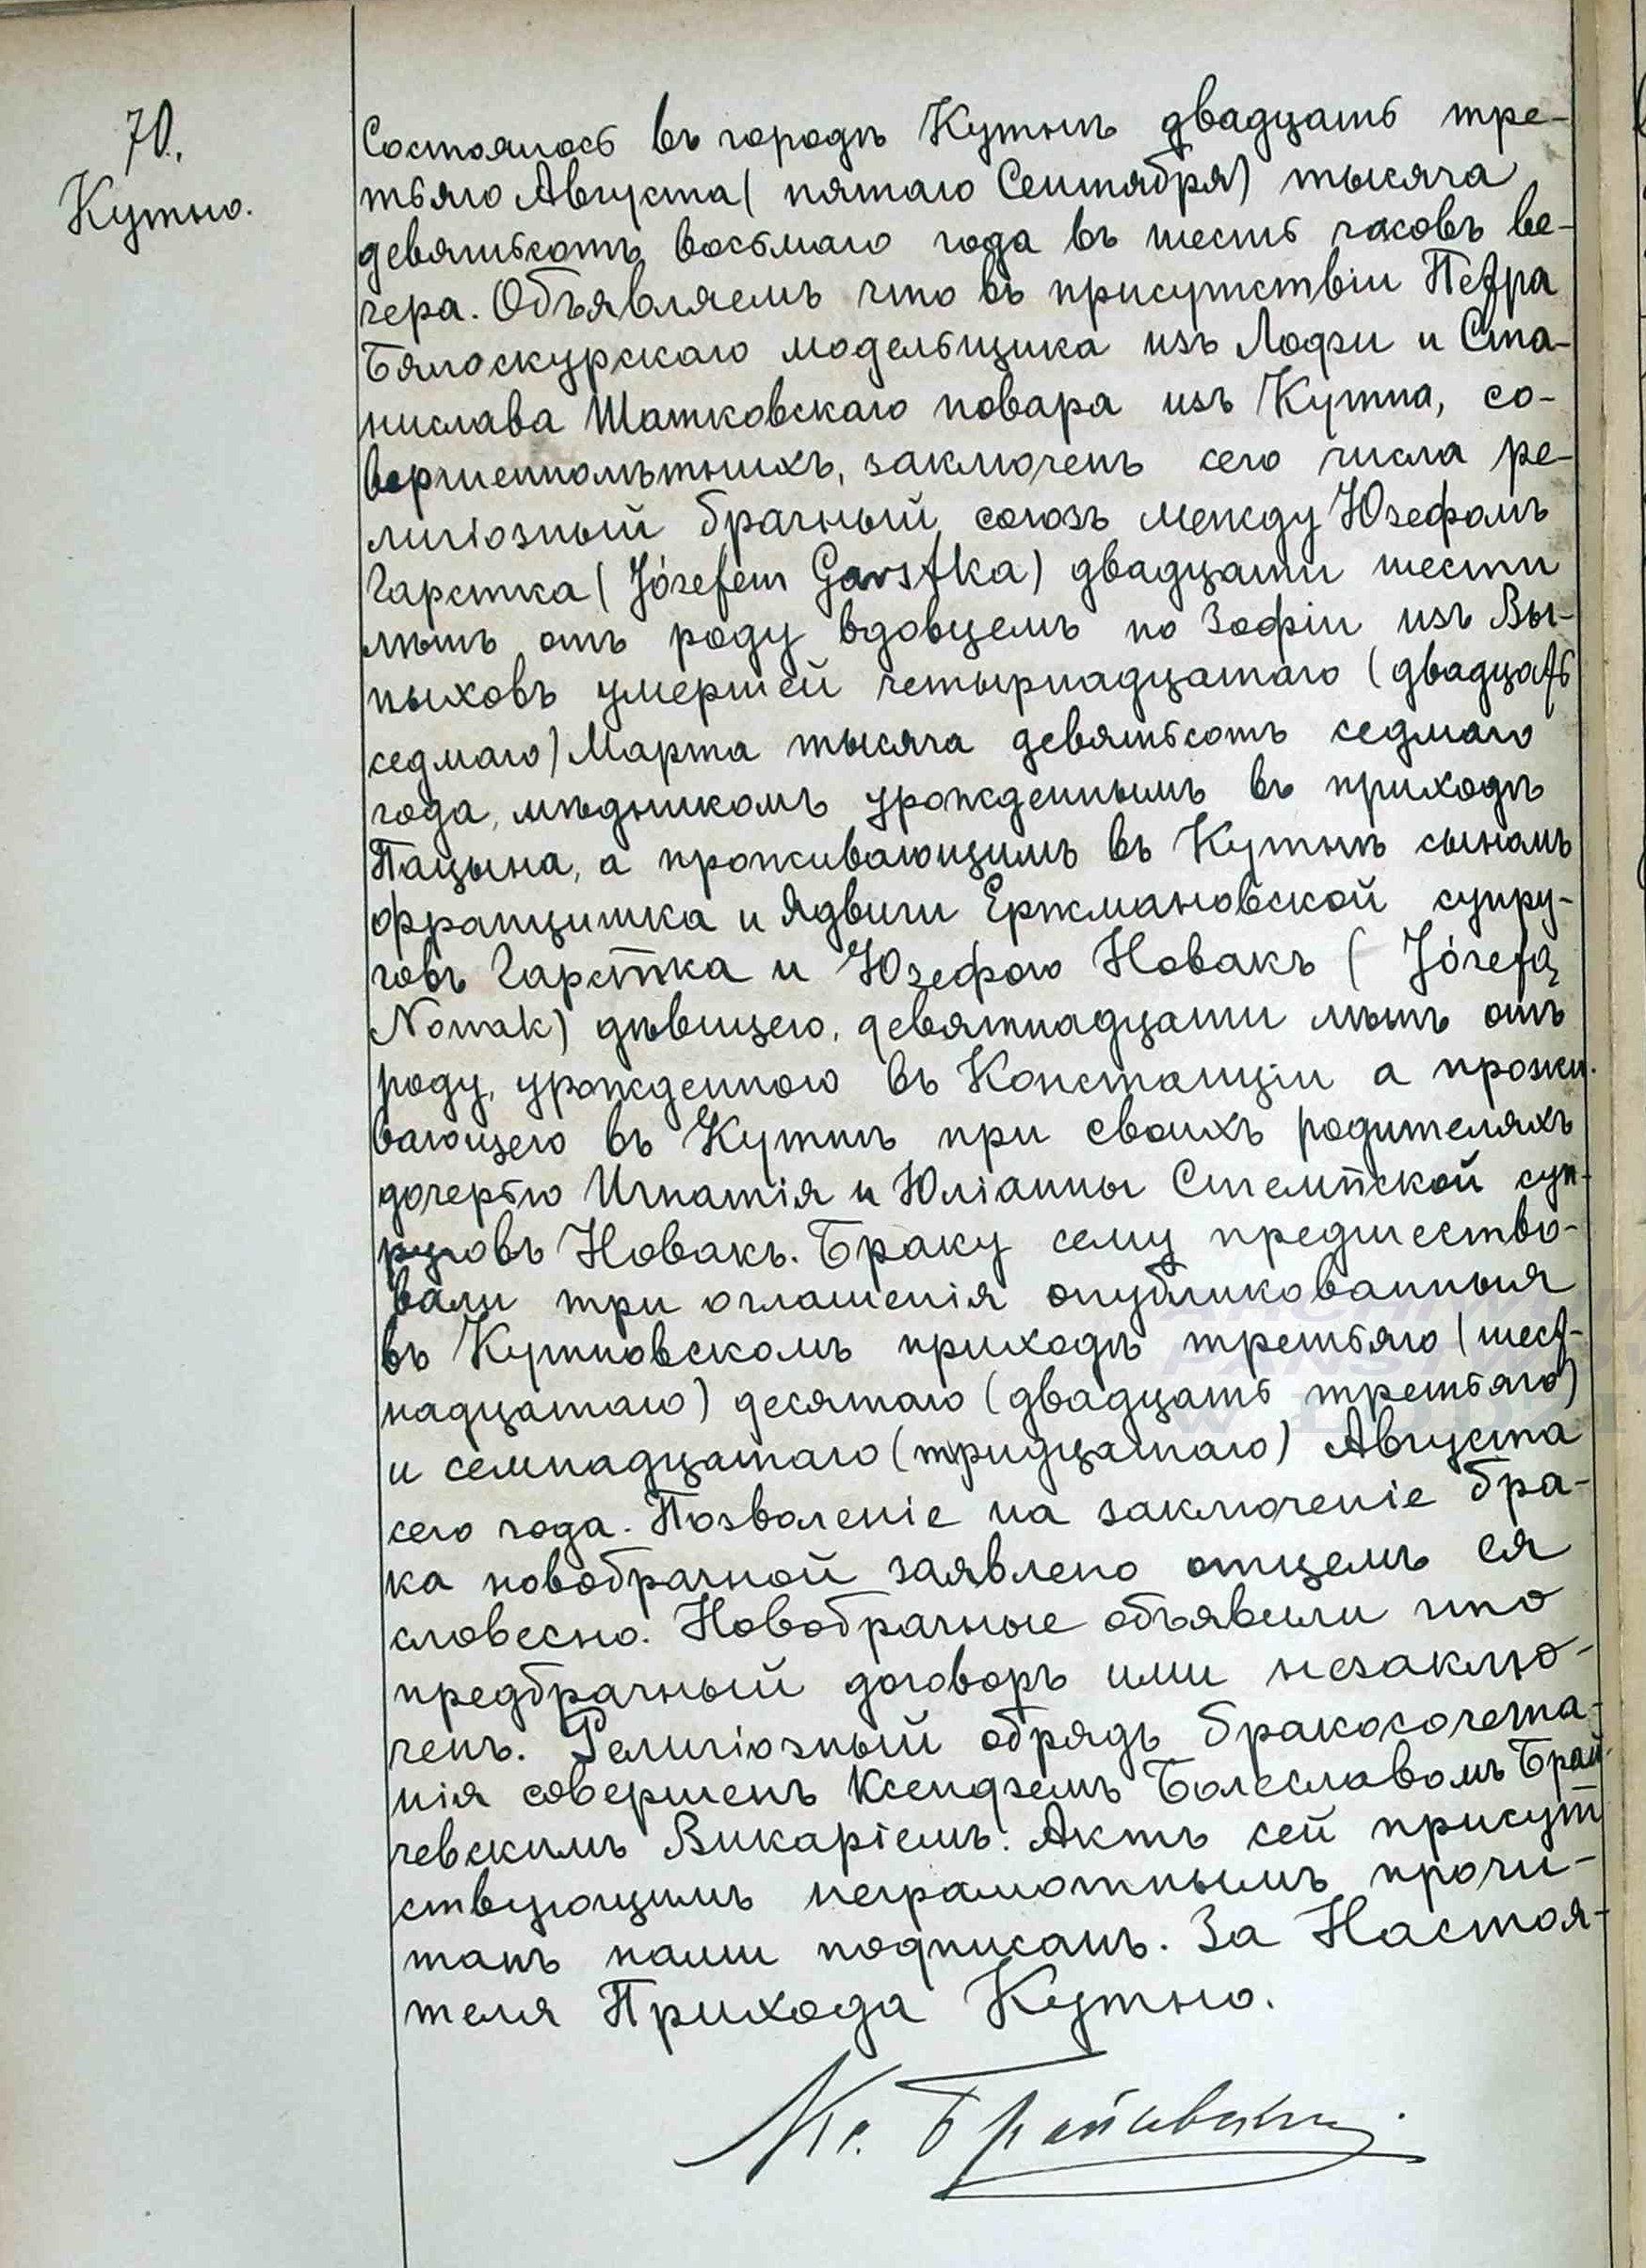 70.
Кутно.
Состоялось въ городѣ Кутнѣ двадцать тре-
тьяго Августа (пятаго Сентября) тысяча
девятьсотъ восьмаго года въ шесть часовъ ве-
чера. Объявляемъ что въ присутствіи Петра
Бялоскурскаго модельщика изъ Лодзи и Ста-
нислава Шатковскаго повара изъ Кутна, со-
вершеннолѣтнихъ, заключенъ сего числа ре-
лигіозный брачный союзъ между Юзефомъ
Гарстка (Józefem Garstka) двадцати шести
лѣтъ отъ роду вдовцемъ по Зофіи изъ Вы-
пыховъ умершей четырнадцатаго (двадцать
седмаго) Марта тысяча девятьсотъ седмаго
года, мѣдникомъ урожденнымъ въ приходѣ
Пацына, а проживающимъ въ Кутнѣ сыномъ
Францишка и Ядвиги Ержмановской супру-
говъ Гарстка и Юзефою Новакъ (Józefą
Nowak) дѣвицею, девятнадцати лѣтъ отъ
роду, урожденною въ Констанціи а прожи-
вающею въ Кутнѣ при своихъ родителяхъ
дочерью Игнатія и Юліанны Стемпской суп-
руговъ Новакъ. Браку сему предшество-
вали три оглашенія опубликованныя
въ Кутновскомъ приходѣ третьяго (шест-
надцатаго) десятаго (двадцать третьяго)
и семнадцатаго (тридцатаго) Августа
сего года. Позволеніе на заключеніе бра-
ка новобрачной заявлено отцемъ ея
словесно. Новобрачные объявили что
предбрачный договоръ ими незаклю-
ченъ. Религіозный обрядъ бракосочета-
нія совершенъ Ксендземъ Болеславомъ Брай-
чевскимъ Викаріемъ. Актъ сей присут
ствующимъ неграмотнымъ прочи-
танъ нами подписанъ. За Настоя-
теля Прихода Кутно.
Кс. Брайчевскій
ARCHIWUM
PAŃSTWOWE
W ŁODZI